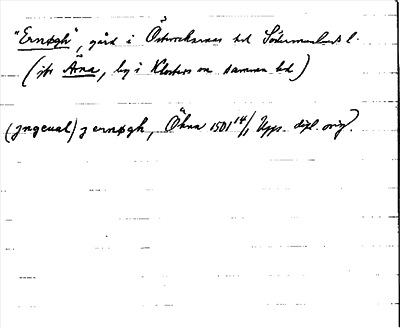 "Ernøgh", gård i Österrekarnes hd Södermanlands l.
(jfr Åna, by i Klosters sn samma hd)
(jngeual) j ernøgh, Ökna 1501 14/1 Upps. dipl. orig.